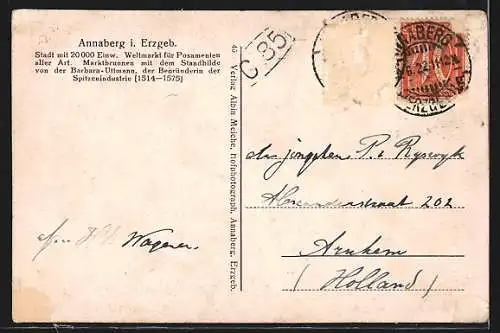 Annaberg i. Erzgeb.
Stadt mit 20 000 Einw. Weltmarkt für Posamenten
aller Art. Marktbrunnen mit dem Standbilde
von der Barbara-Uttmann, der Begründerin der
Spitzenindustrie [1514-1575]
45 Verlag Albin Meiche, Hofphotograph, Annaberg, Erzgeb.
C 85
ANNABERG
ERZGEB.
den jongeheer P. v. Ryswyk
Alexanderstraat 202
Arnhem
(Holland)
Wagener